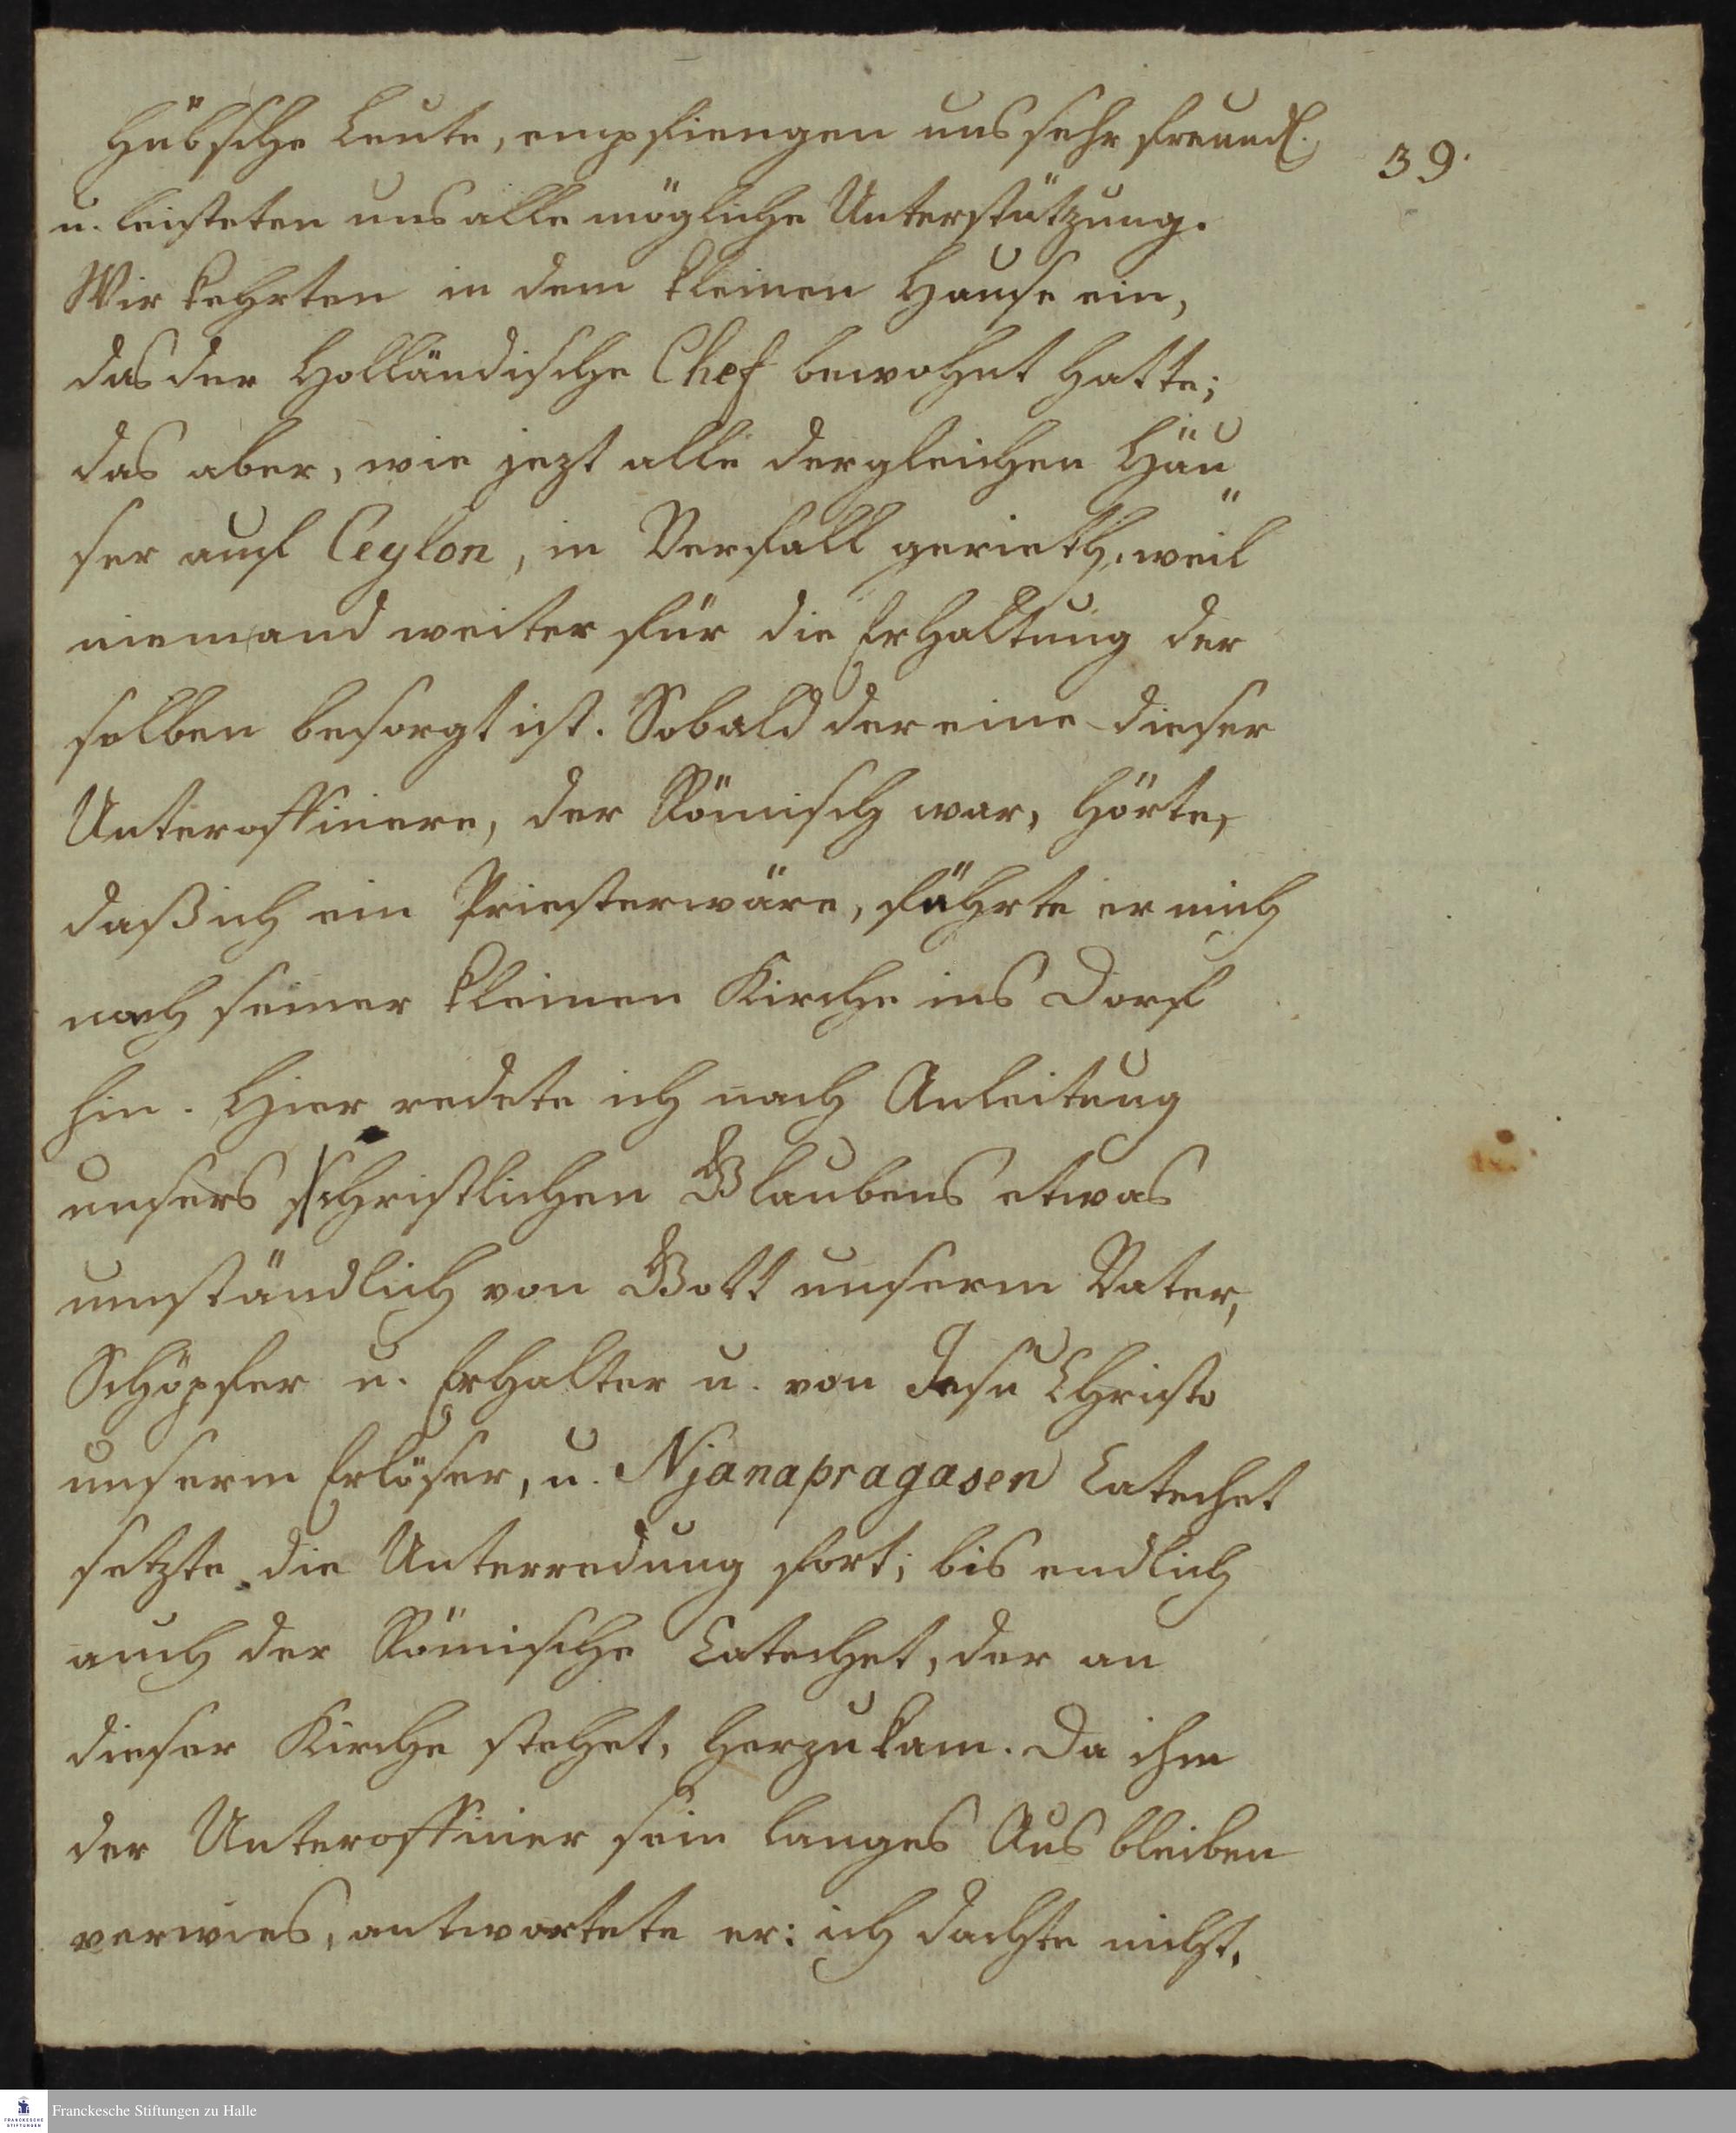 hübsche Leute, empfiengen uns sehr freundl.
39.
u. leisteten uns alle mögliche Unterstützung.
Wir kehrten in dem kleinen Hause ein,
das der Holländische Chef bewohnt hatte;
das aber, wie jezt alle dergleichen Häu"
ser auf Ceylon, in Verfall gerieth, weil
niemand weiter für die Erhaltung der
selben besorgt ist. Sobald der eine dieser
Unterofficiere, der Römisch war, hörte,
daß ich ein Priester wäre, führte er mich
nach seiner kleinen Kirche ins Dorf
hin. Hier redete ich nach Anleitung
unsers christlichen Glaubens etwas
umständlich von Gott unserm Vater,
Schöpfer u. Erhalter u. von Jesu Christo
unserm Erlöser, u. Njanapragasen Catechet
setzte die Unterredung fort; bis endlich
auch der Römische Catechet, der an
dieser Kirche stehet, herzukam. Da ihm
der Unterofficier sein langes Ausbleiben
verwies, antwortete er: ich dachte nicht,
Franckesche Stiftungen zu Halle